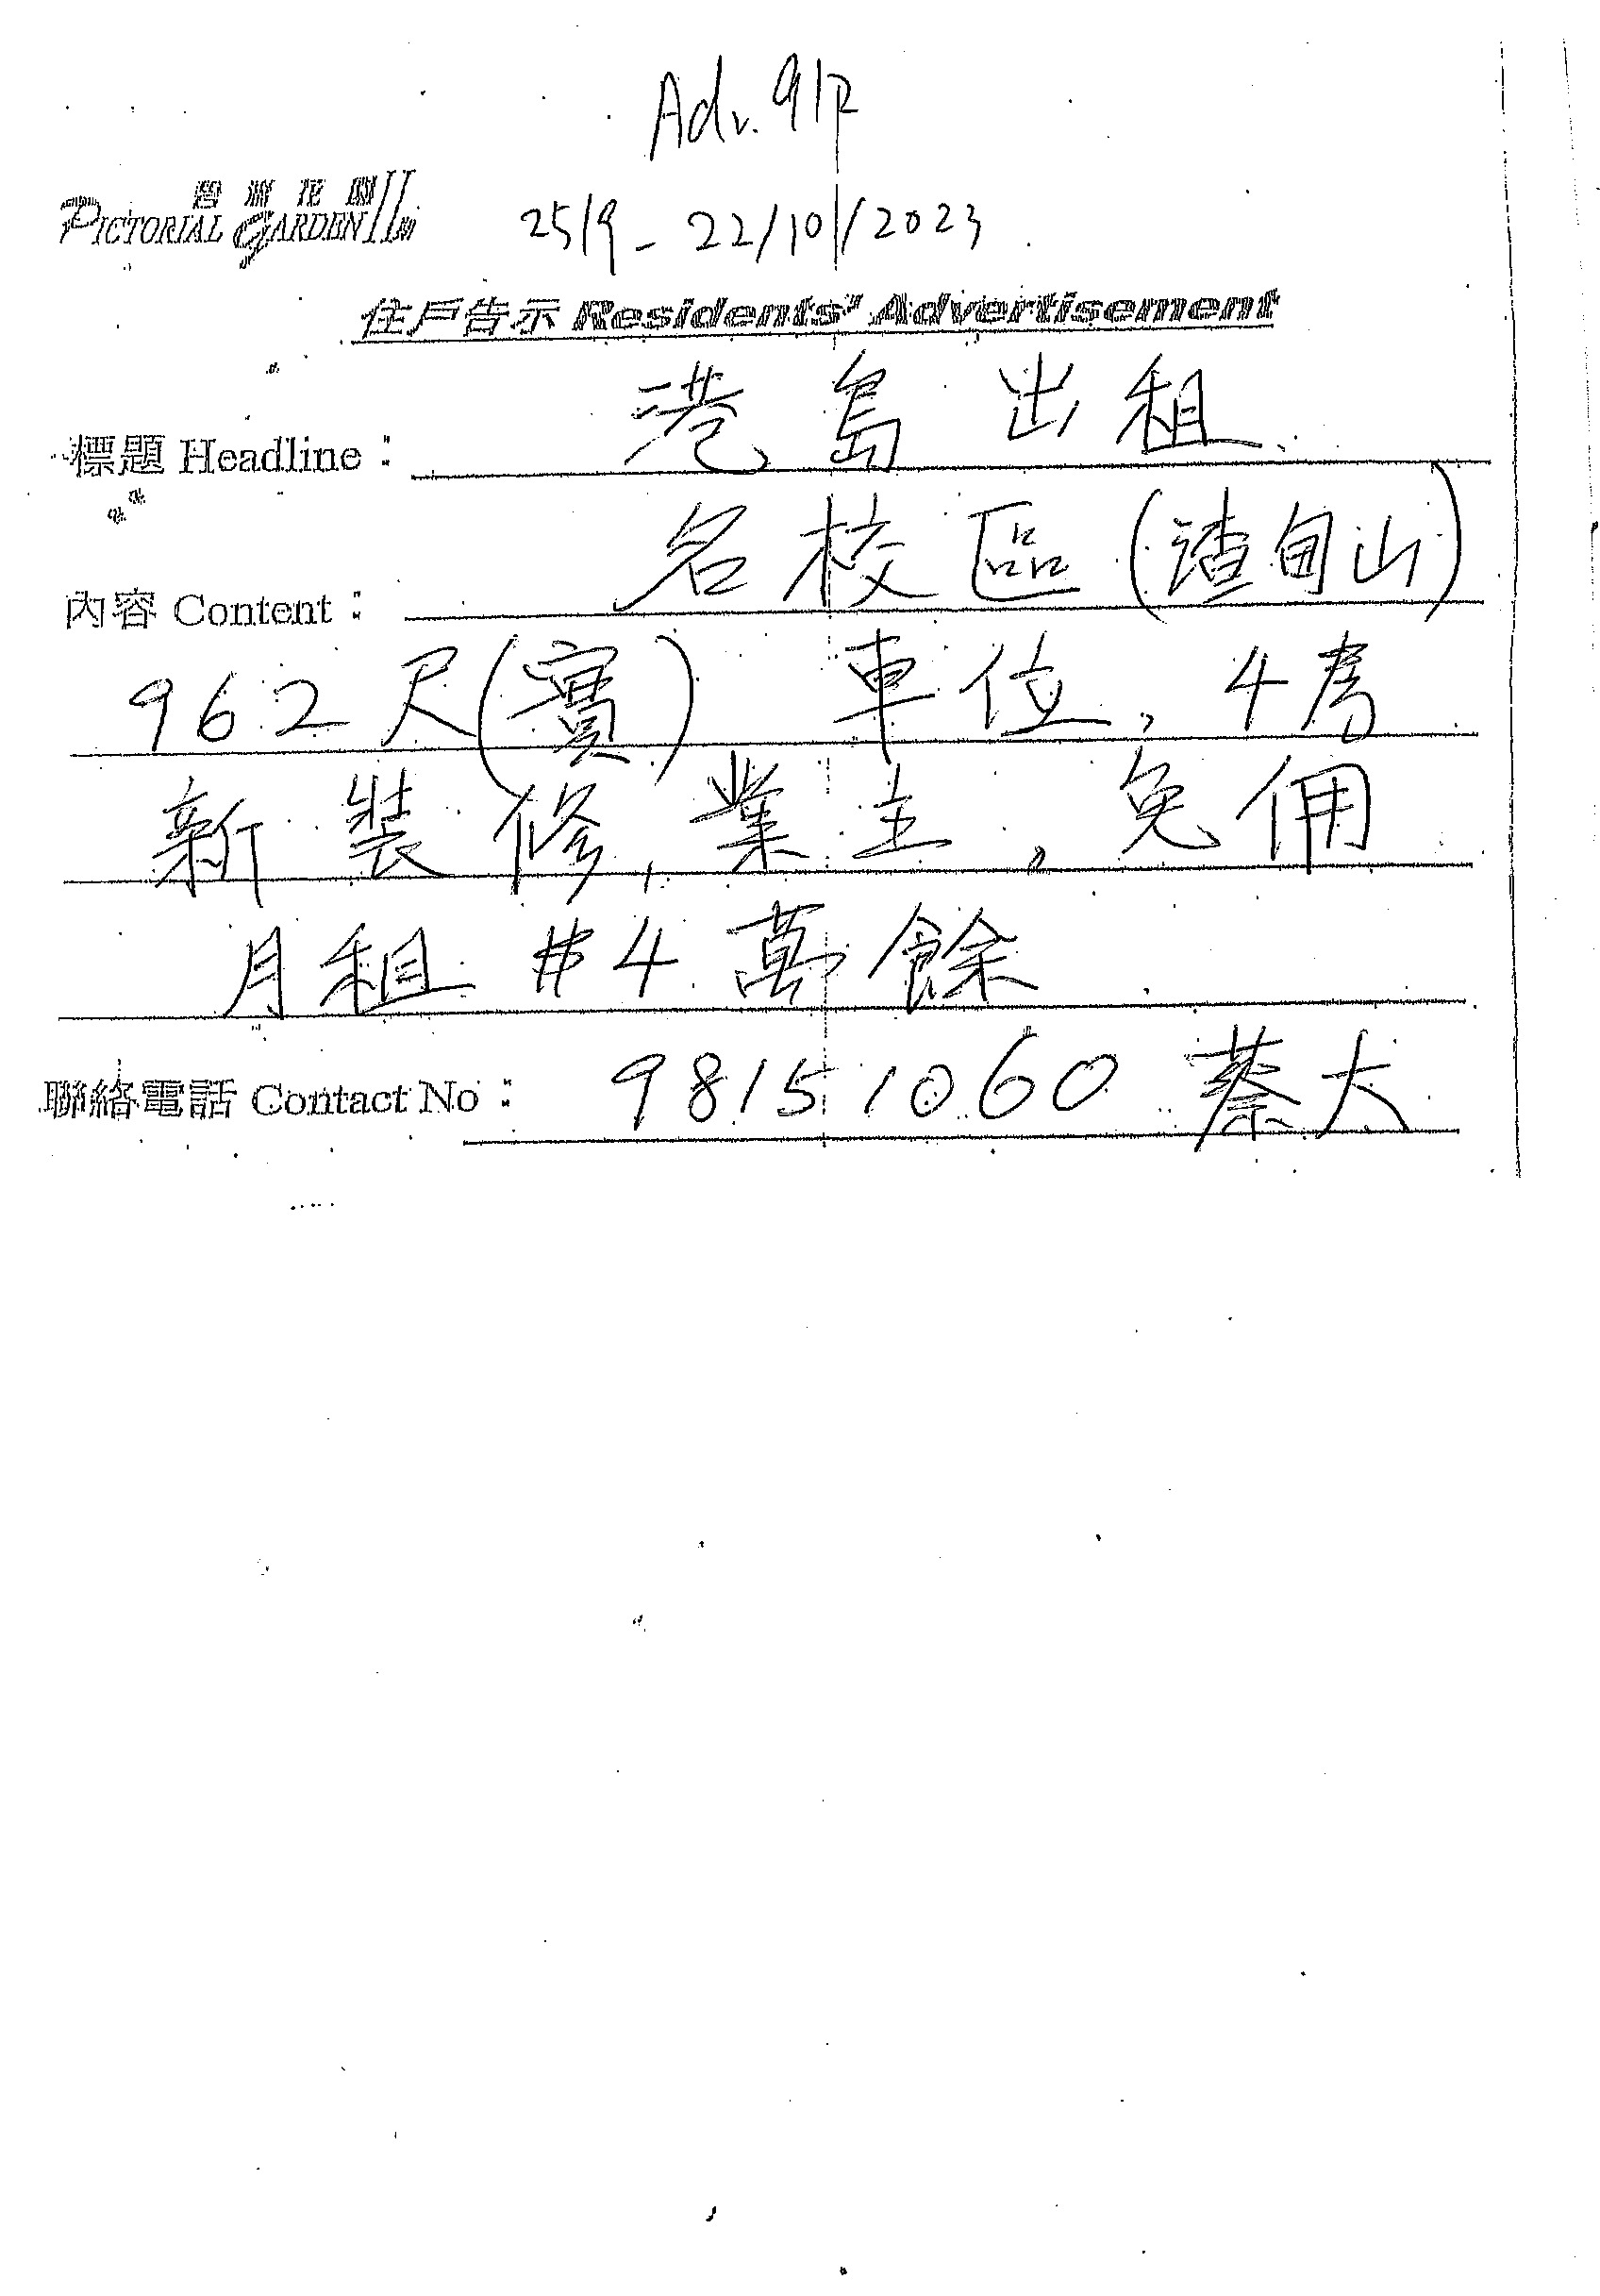 Adv. 91P
PICTORIAL GARDEN II
25/9 - 22/10/2023
住戶告示 Residents' Advertisement
標題 Headline： 港島出租
內容 Content： 名校區(渣甸山)
962尺(實) 車位, 4房
新裝修, 業主, 免佣
月租 $4萬餘
聯絡電話 Contact No： 98151060 蔡太